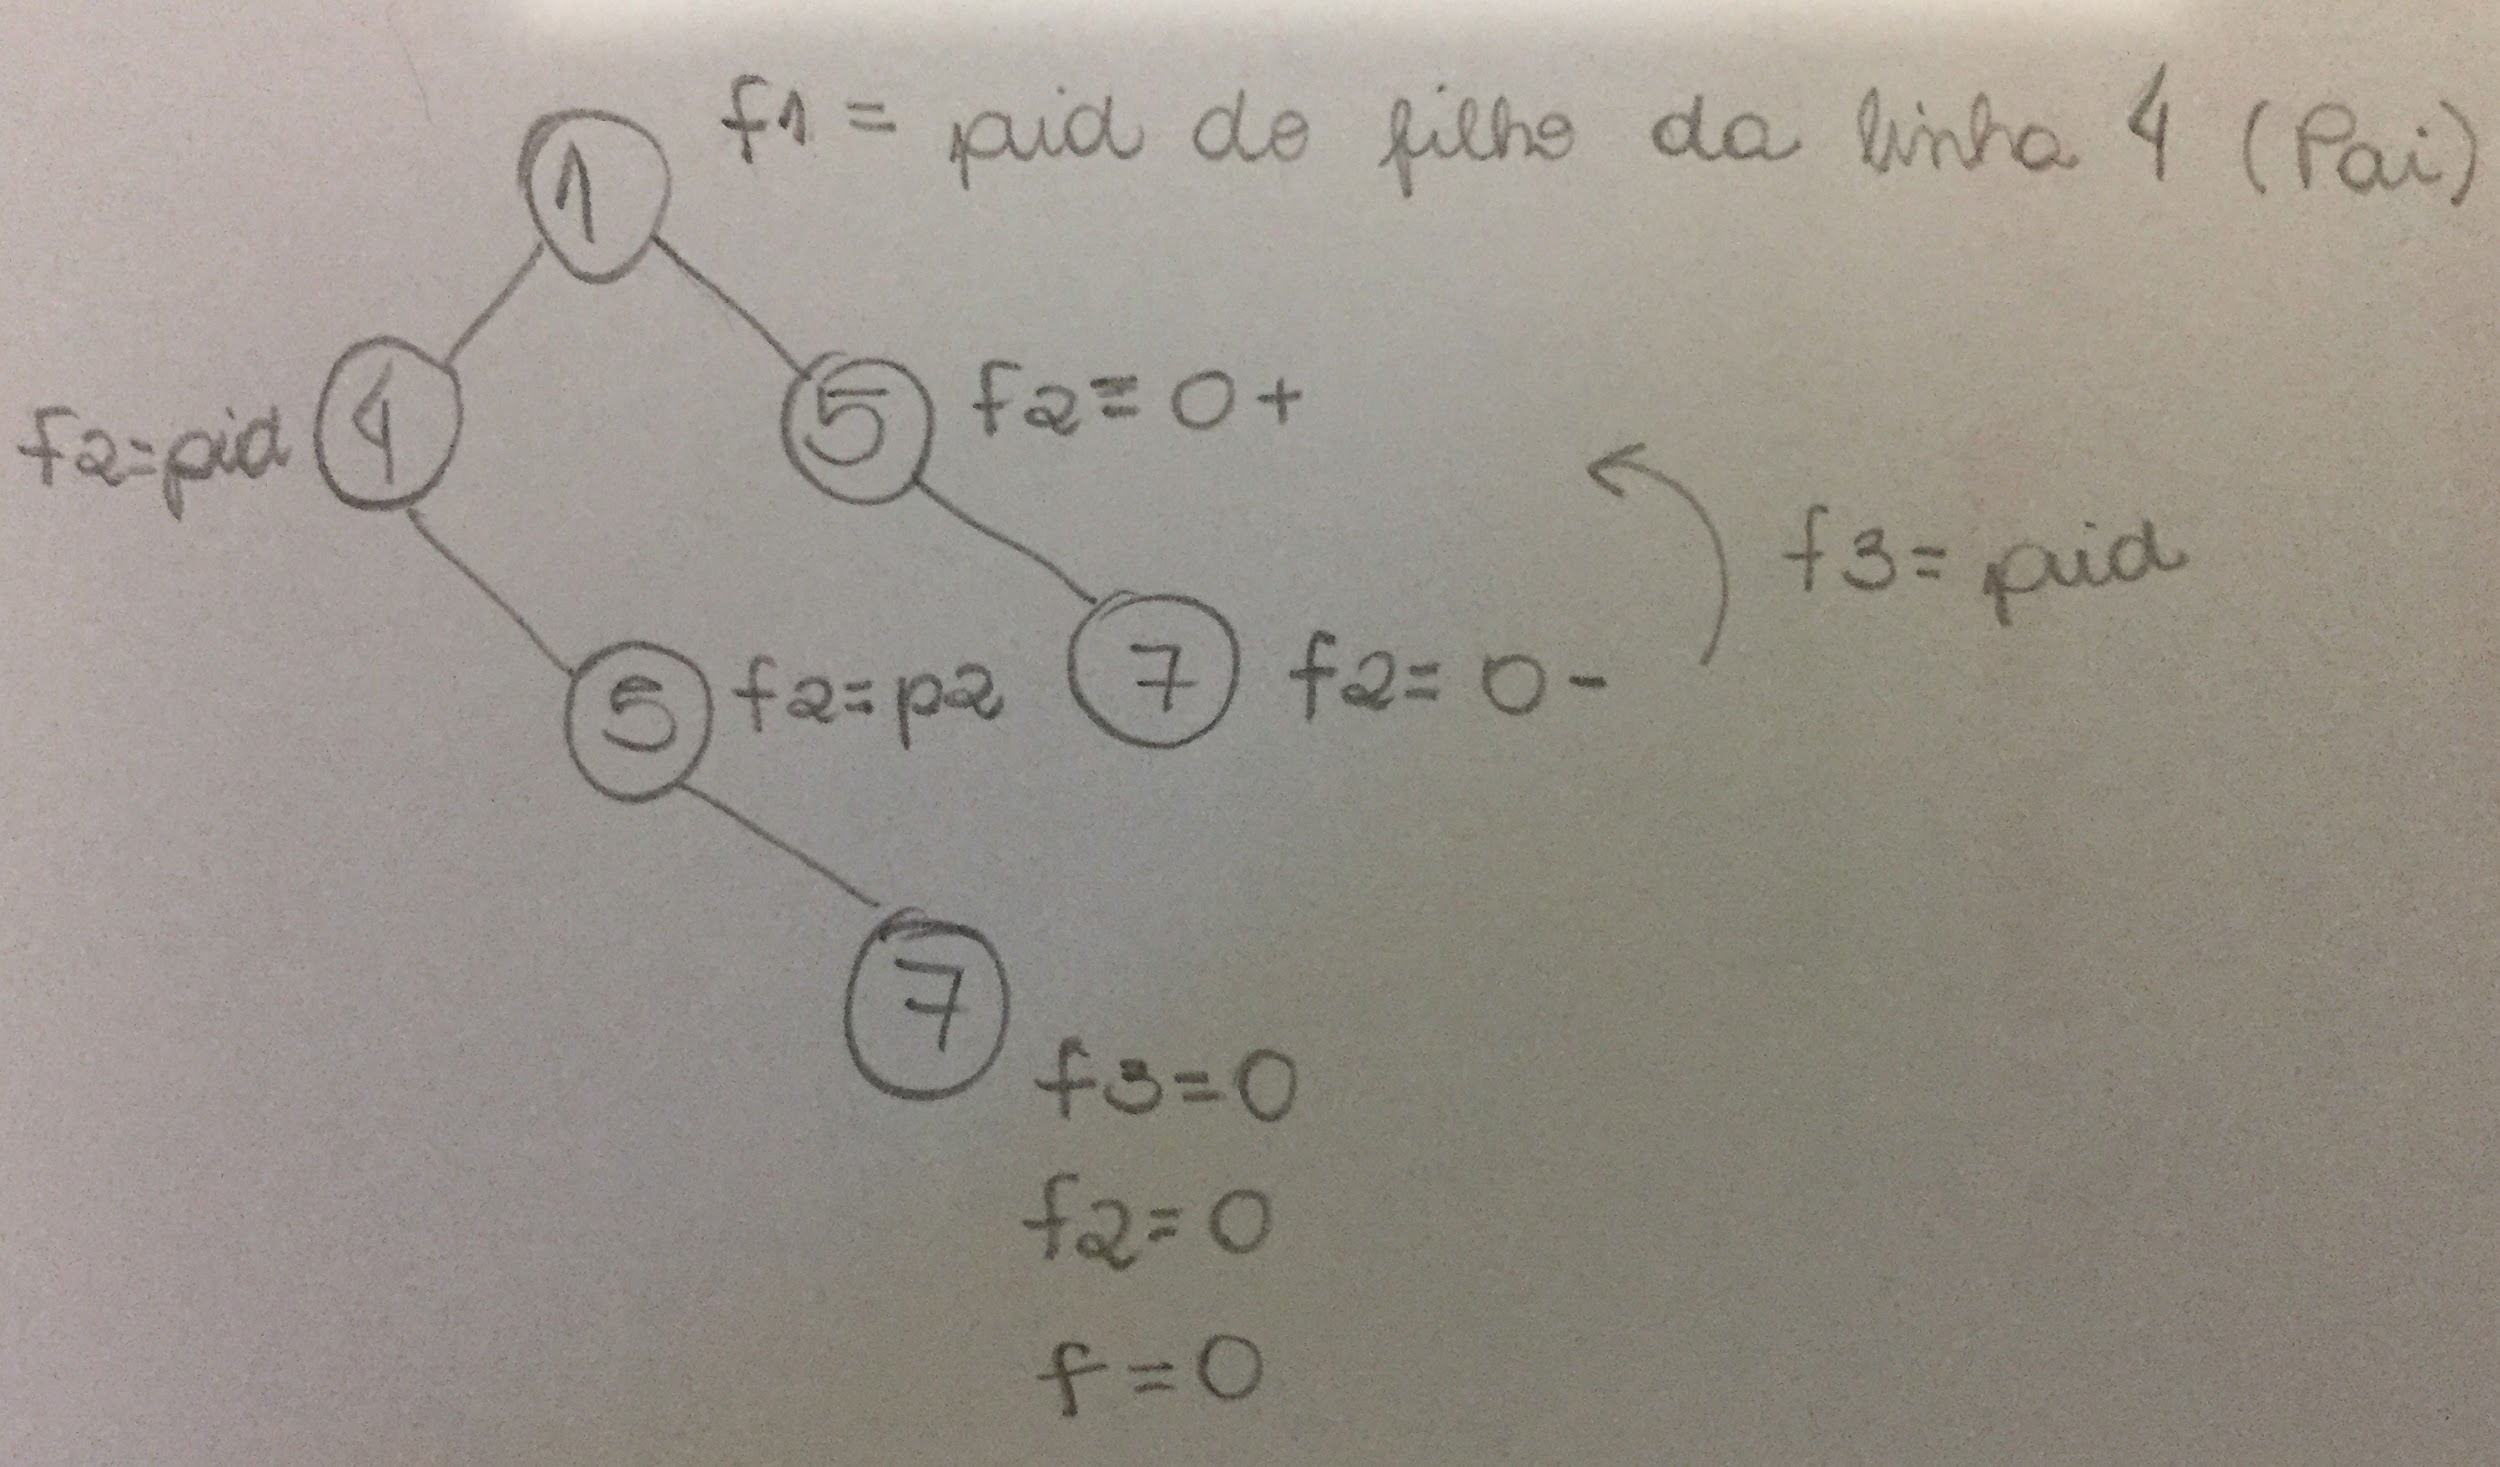 1 f1 = pid do filho da linha 4 (Pai)
f2=pid 4
5 f2=0+
f3=pid
5 f2=p2
7 f2=0-
7
f3=0
f2=0
f=0